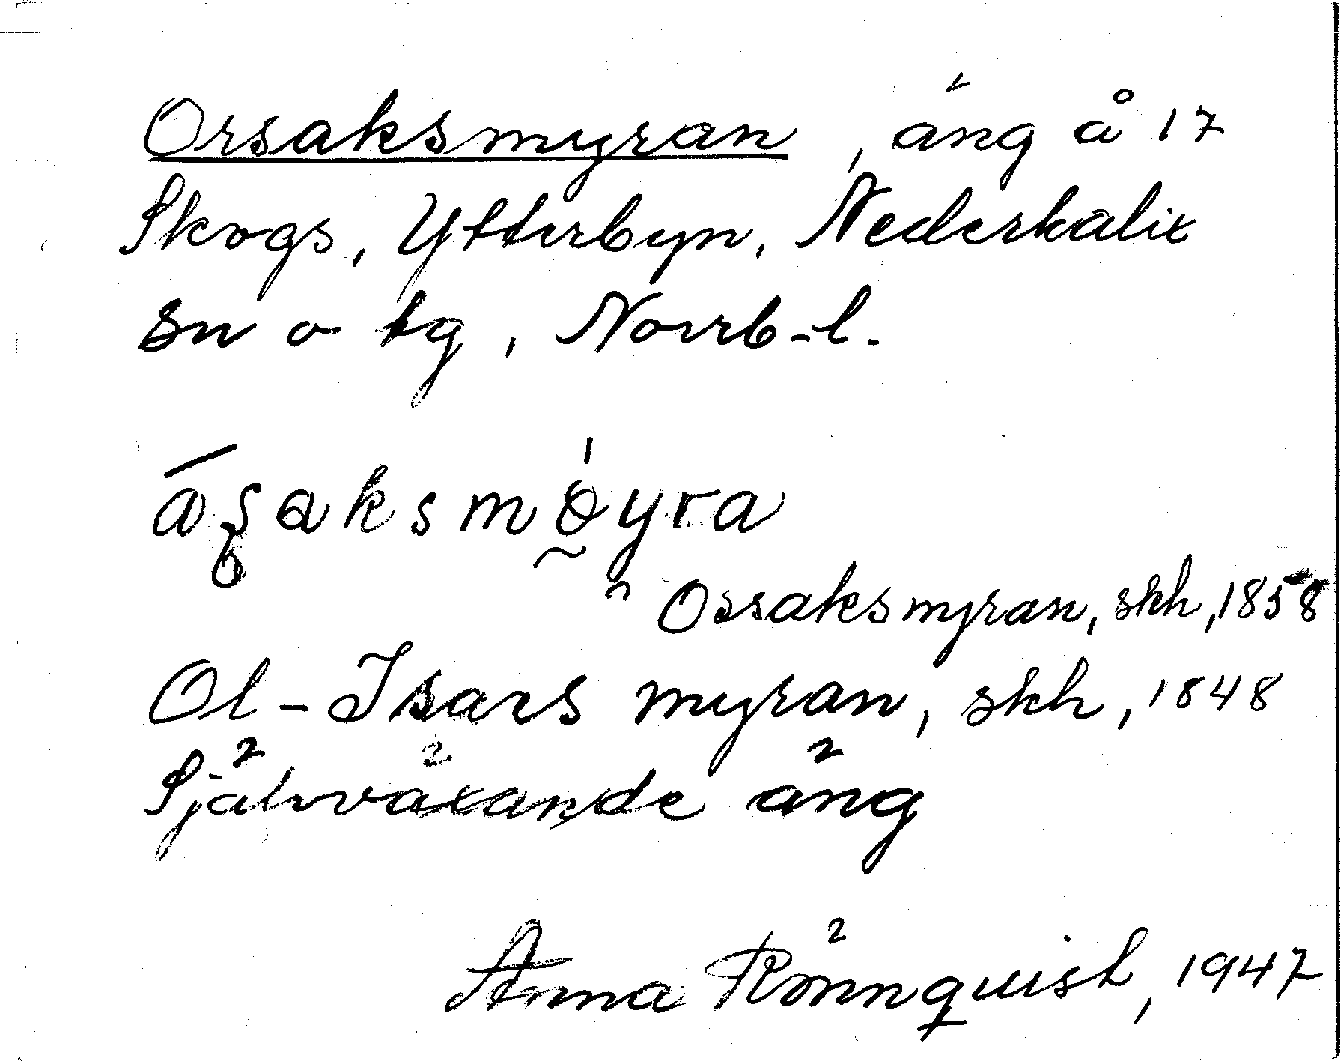 Orsaksmyran, äng å 17
Skogs, Ytterbyn, Nederkalix
sn o tg, Norrb-l.
Ossaksmyran, skh, 1858
Ol-Isaks myran, skh, 1848
Självväxande äng
Anna Rönnquist, 1947